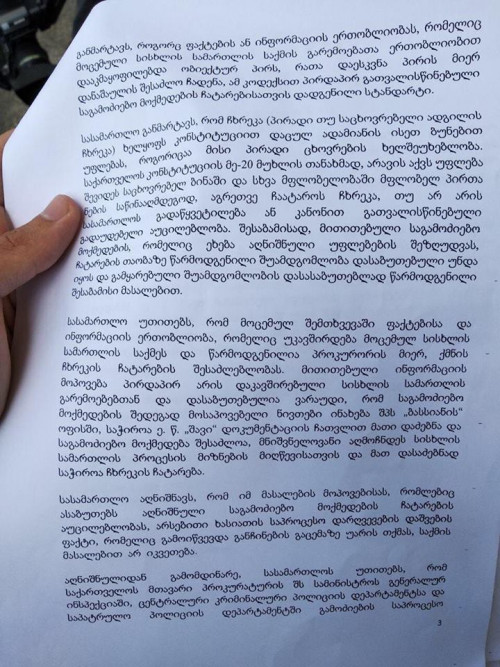 განმარტავს, როგორც ფაქტების ან ინფორმაციის ერთობლიობას, რომელიც
მოცემული სისხლის სამართლის საქმის გარემოებათა ერთობლიობით
დააკმაყოფილებდა ობიექტურ პირს, რათა დაესკვნა პირის მიერ
დანაშაულის შესაძლო ჩადენა, ამ კოდექსით პირდაპირ გათვალისწინებული
საგამოძიებო მოქმედების ჩატარებისათვის დადგენილი სტანდარტი.
სასამართლო განმარტავს, რომ ჩხრეკა (პირადი თუ საცხოვრებელი ადგილის
ჩხრეკა) ხელყოფს კონსტიტუციით დაცულ ადამიანის ისეთ ბუნებით
უფლებას, როგორიცაა მისი პირადი ცხოვრების ხელშეუხებლობა.
საქართველოს კონსტიტუციის მე-20 მუხლის თანახმად, არავის აქვს უფლება
შევიდეს საცხოვრებელ ბინაში და სხვა მფლობელობაში მფლობელ პირთა
ნების საწინააღმდეგოდ, აგრეთვე ჩაატაროს ჩხრეკა, თუ არ არის
სასამართლოს გადაწყვეტილება ან კანონით გათვალისწინებული
გადაუდებელი აუცილებლობა. შესაბამისად, მითითებული საგამოძიებო
მოქმედების, რომელიც ეხება აღნიშნული უფლებების შეზღუდვას,
ჩატარების თაობაზე წარმოდგენილი შუამდგომლობა დასაბუთებული უნდა
იყოს და გამყარებული შუამდგომლობის დასასაბუთებლად წარმოდგენილი
შესაბამისი მასალებით.
სასამართლო უთითებს, რომ მოცემულ შემთხვევაში ფაქტებისა და
ინფორმაციის ერთობლიობა, რომელიც უკავშირდება მოცემულ სისხლის
სამართლის საქმეს და წარმოდგენილია პროკურორის მიერ, ქმნის
ჩხრეკის ჩატარების შესაძლებლობას. მითითებული ინფორმაციის
მოპოვება პირდაპირ არის დაკავშირებული სისხლის სამართლის
გარემოებებთან და დასაბუთებულია ვარაუდი, რომ საგამოძიებო
მოქმედების შედეგად მოსაპოვებელი ნივთები ინახება შპს „ბასსიანის“
ოფისში, საჭიროა ე. წ. „შავი“ დოკუმენტაციის ჩათვლით მათი დაძებნა და
საგამოძიებო მოქმედება შესაძლოა, მნიშვნელოვანი აღმოჩნდეს სისხლის
სამართლის პროცესის მიზნების მიღწევისათვის და მათ დასაძებნად
საჭიროა ჩხრეკის ჩატარება.
სასამართლო აღნიშნავს, რომ იმ მასალების მოპოვებისას, რომლებიც
ასაბუთებს აღნიშნული საგამოძიებო მოქმედების ჩატარების
აუცილებლობას, არსებითი ხასიათის საპროცესო დარღვევების დაშვების
ფაქტი, რომელიც გამოიწვევდა განჩინების გაცემაზე უარის თქმას, საქმის
მასალებით არ იკვეთება.
აღნიშნულიდან გამომდინარე, სასამართლოს უთითებს, რომ
საქართველოს მთავარი პროკურატურის შს სამინისტროს გენერალურ
ინსპექციაში, ცენტრალური კრიმინალური პოლიციის დეპარტამენტსა და
საპატრულო პოლიციის დეპარტამენტში გამოძიების საპროცესო
3